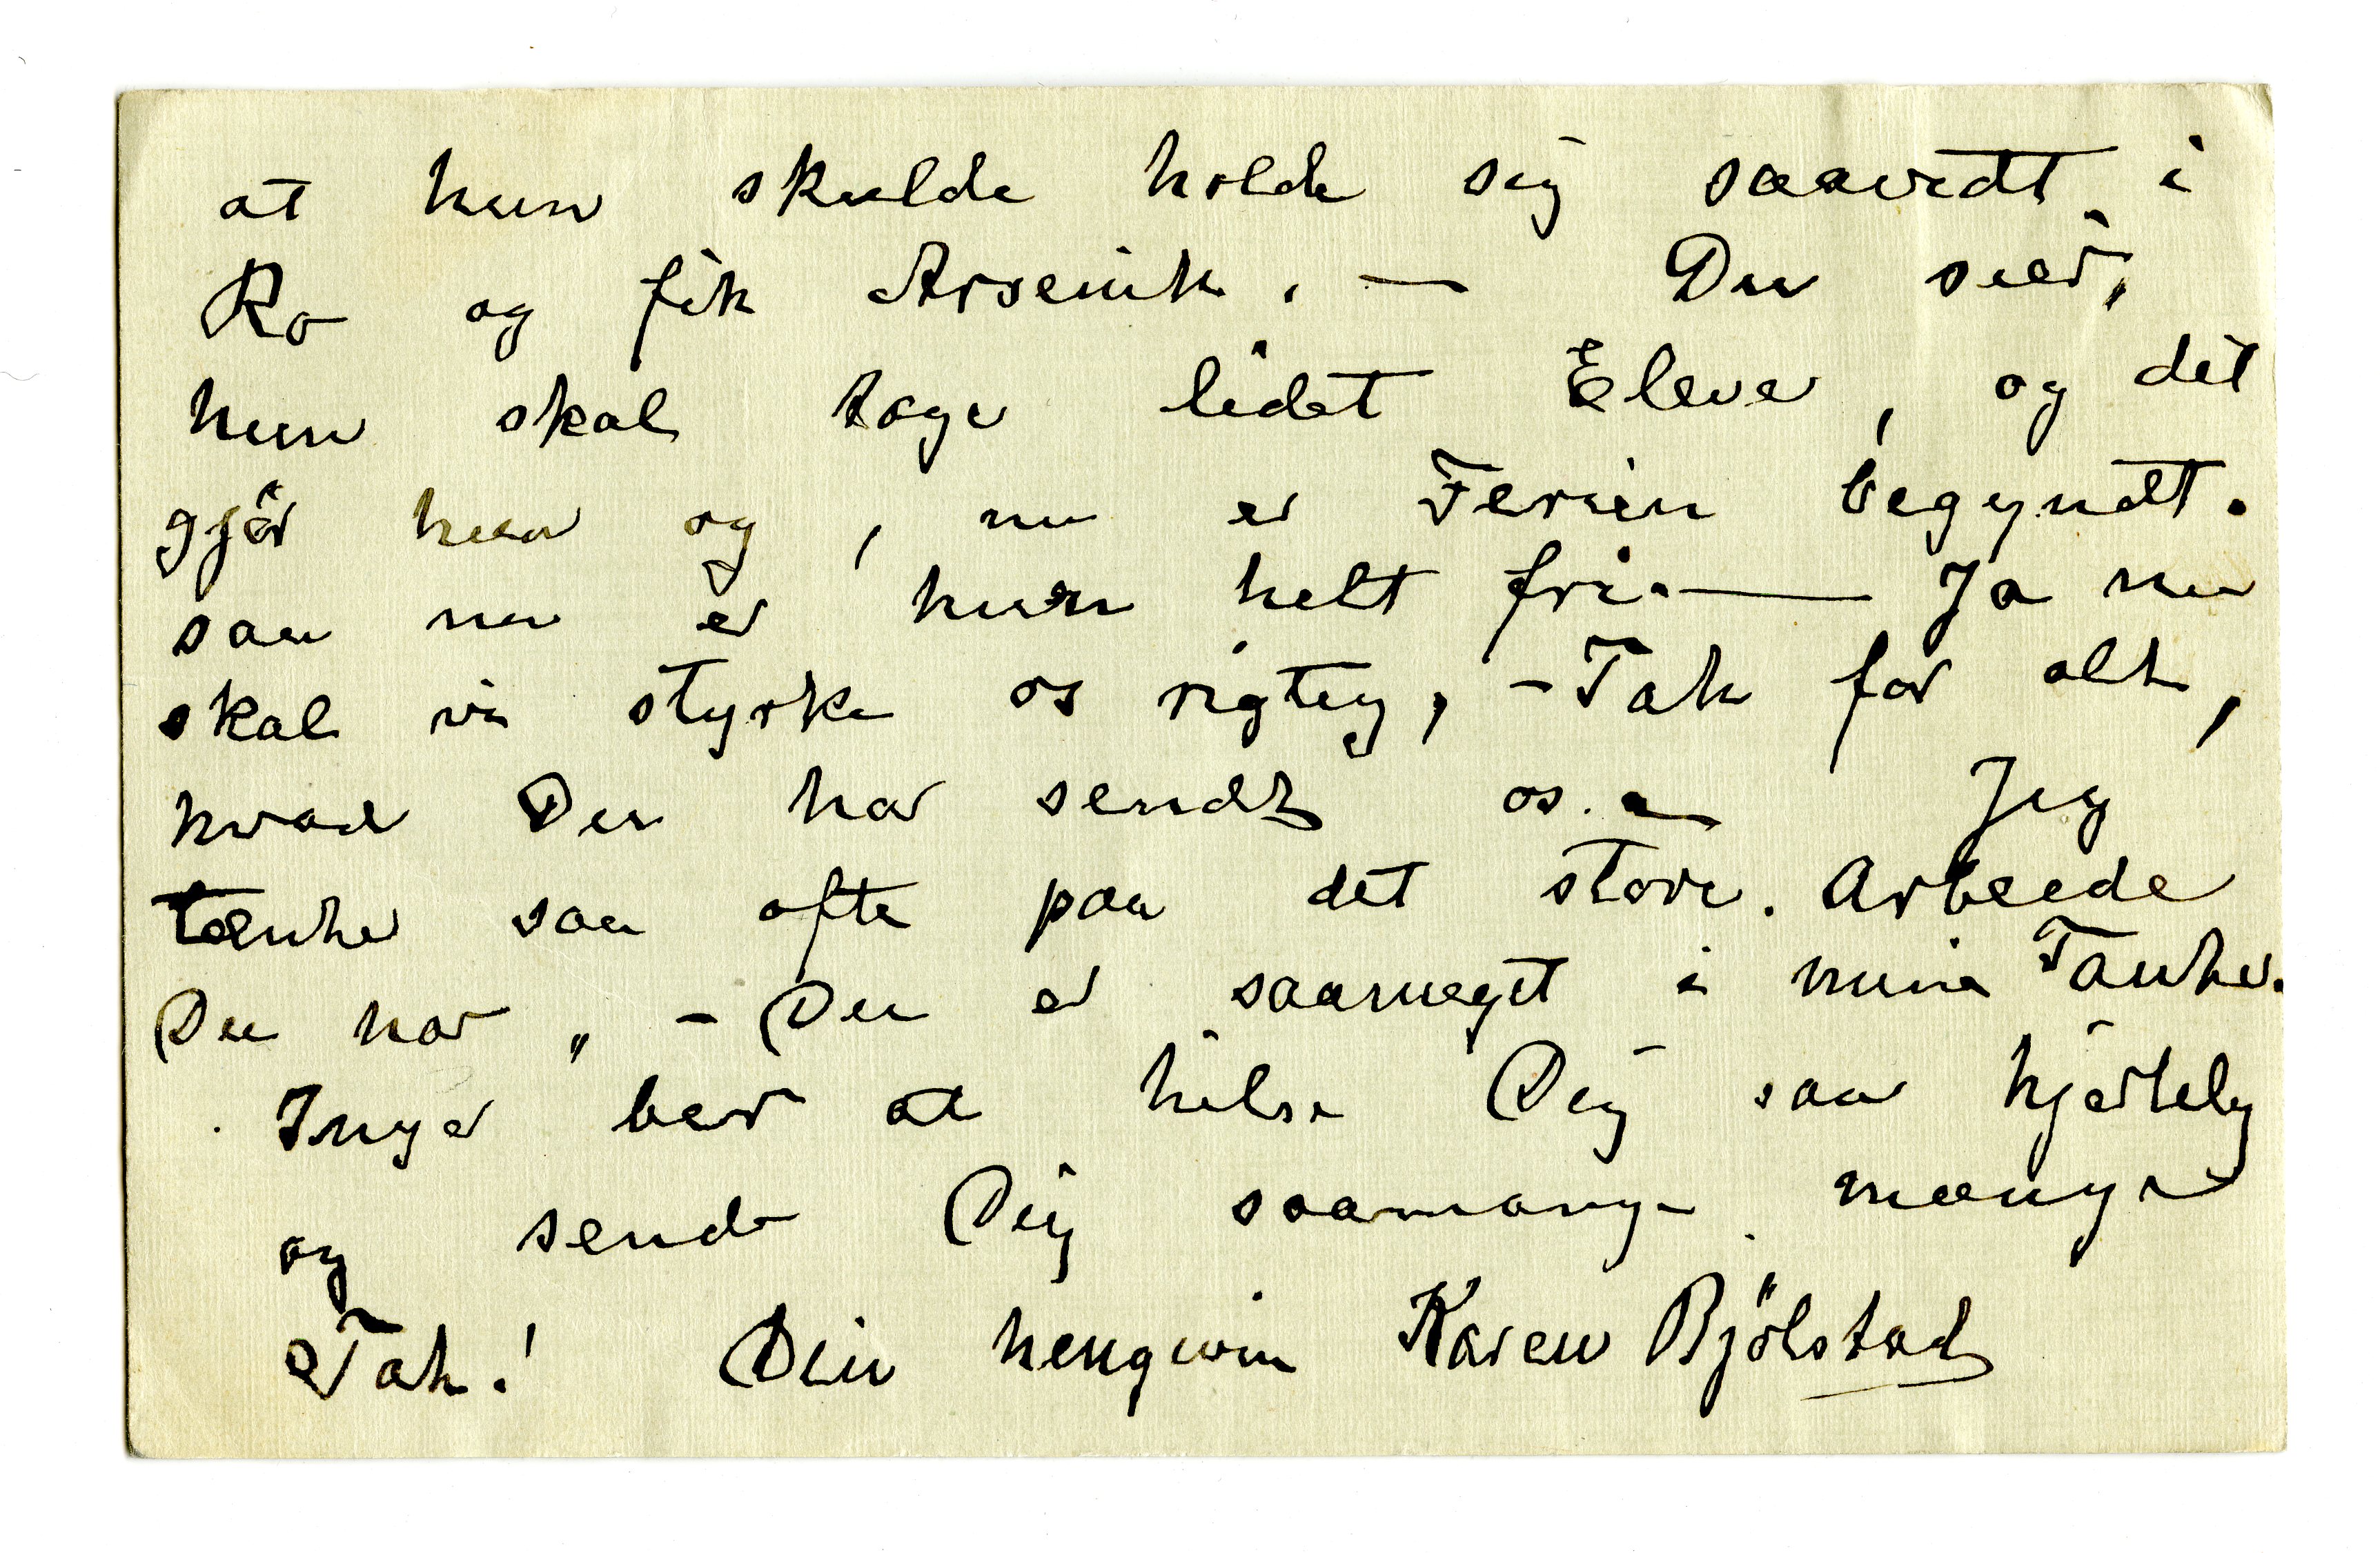 at hun skulde holde sig saavidt i
Ro og fik Arsenik. — Du seer,
hun skal tage lidet Elever, og det
gjör hun og, nu er Ferien begyndt.
saa nu er hun helt fri. — Ja nu
skal vi styrke os rigtig, – Tak for alt,
hvad Du har sendt os. — Jeg
tænker saa ofte paa det store Arbeide
Du har, – Du er saameget i mine Tanker.
Inger ber at hilse Dig saa hjertelig
og sende Dig saamange mange
Tak! Din hengivne Karen Bjölstad